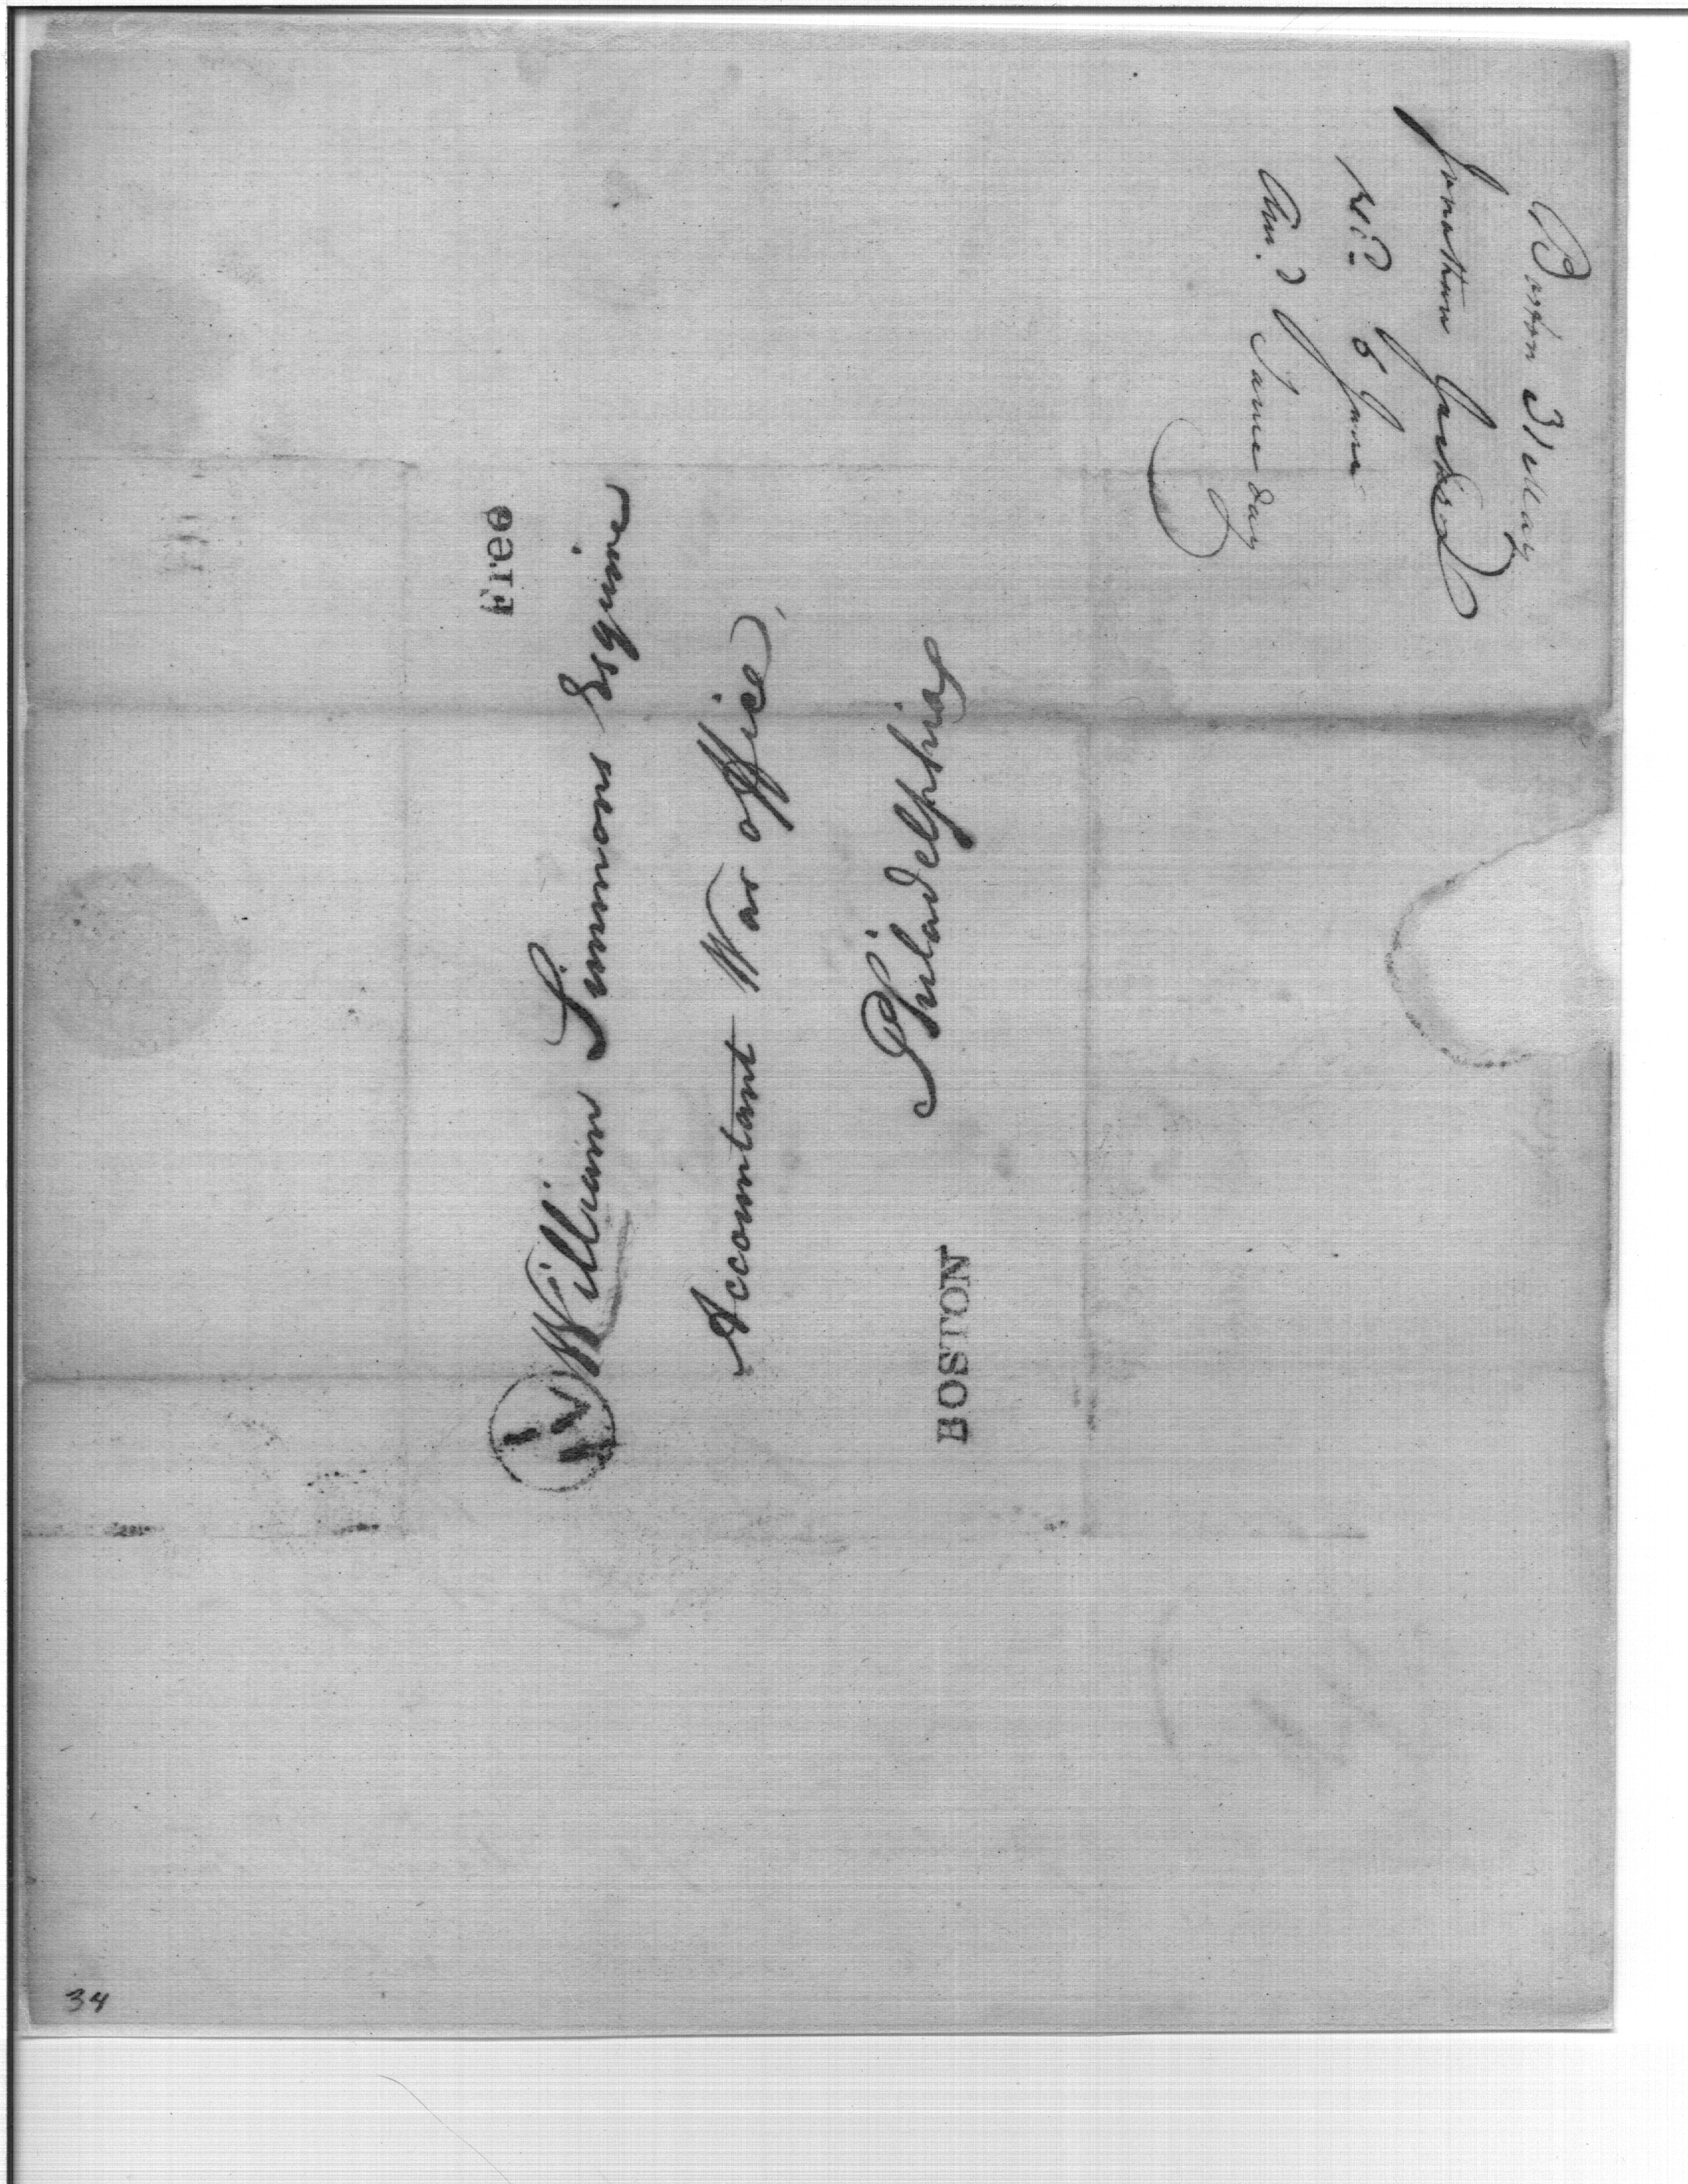 Free
William Simmons Esquire
Accountant War office,
Philadelphia
BOSTON
Boston 31 May
Jonathan Jackson
Rec.d 6 June
Ans.d Same day
34